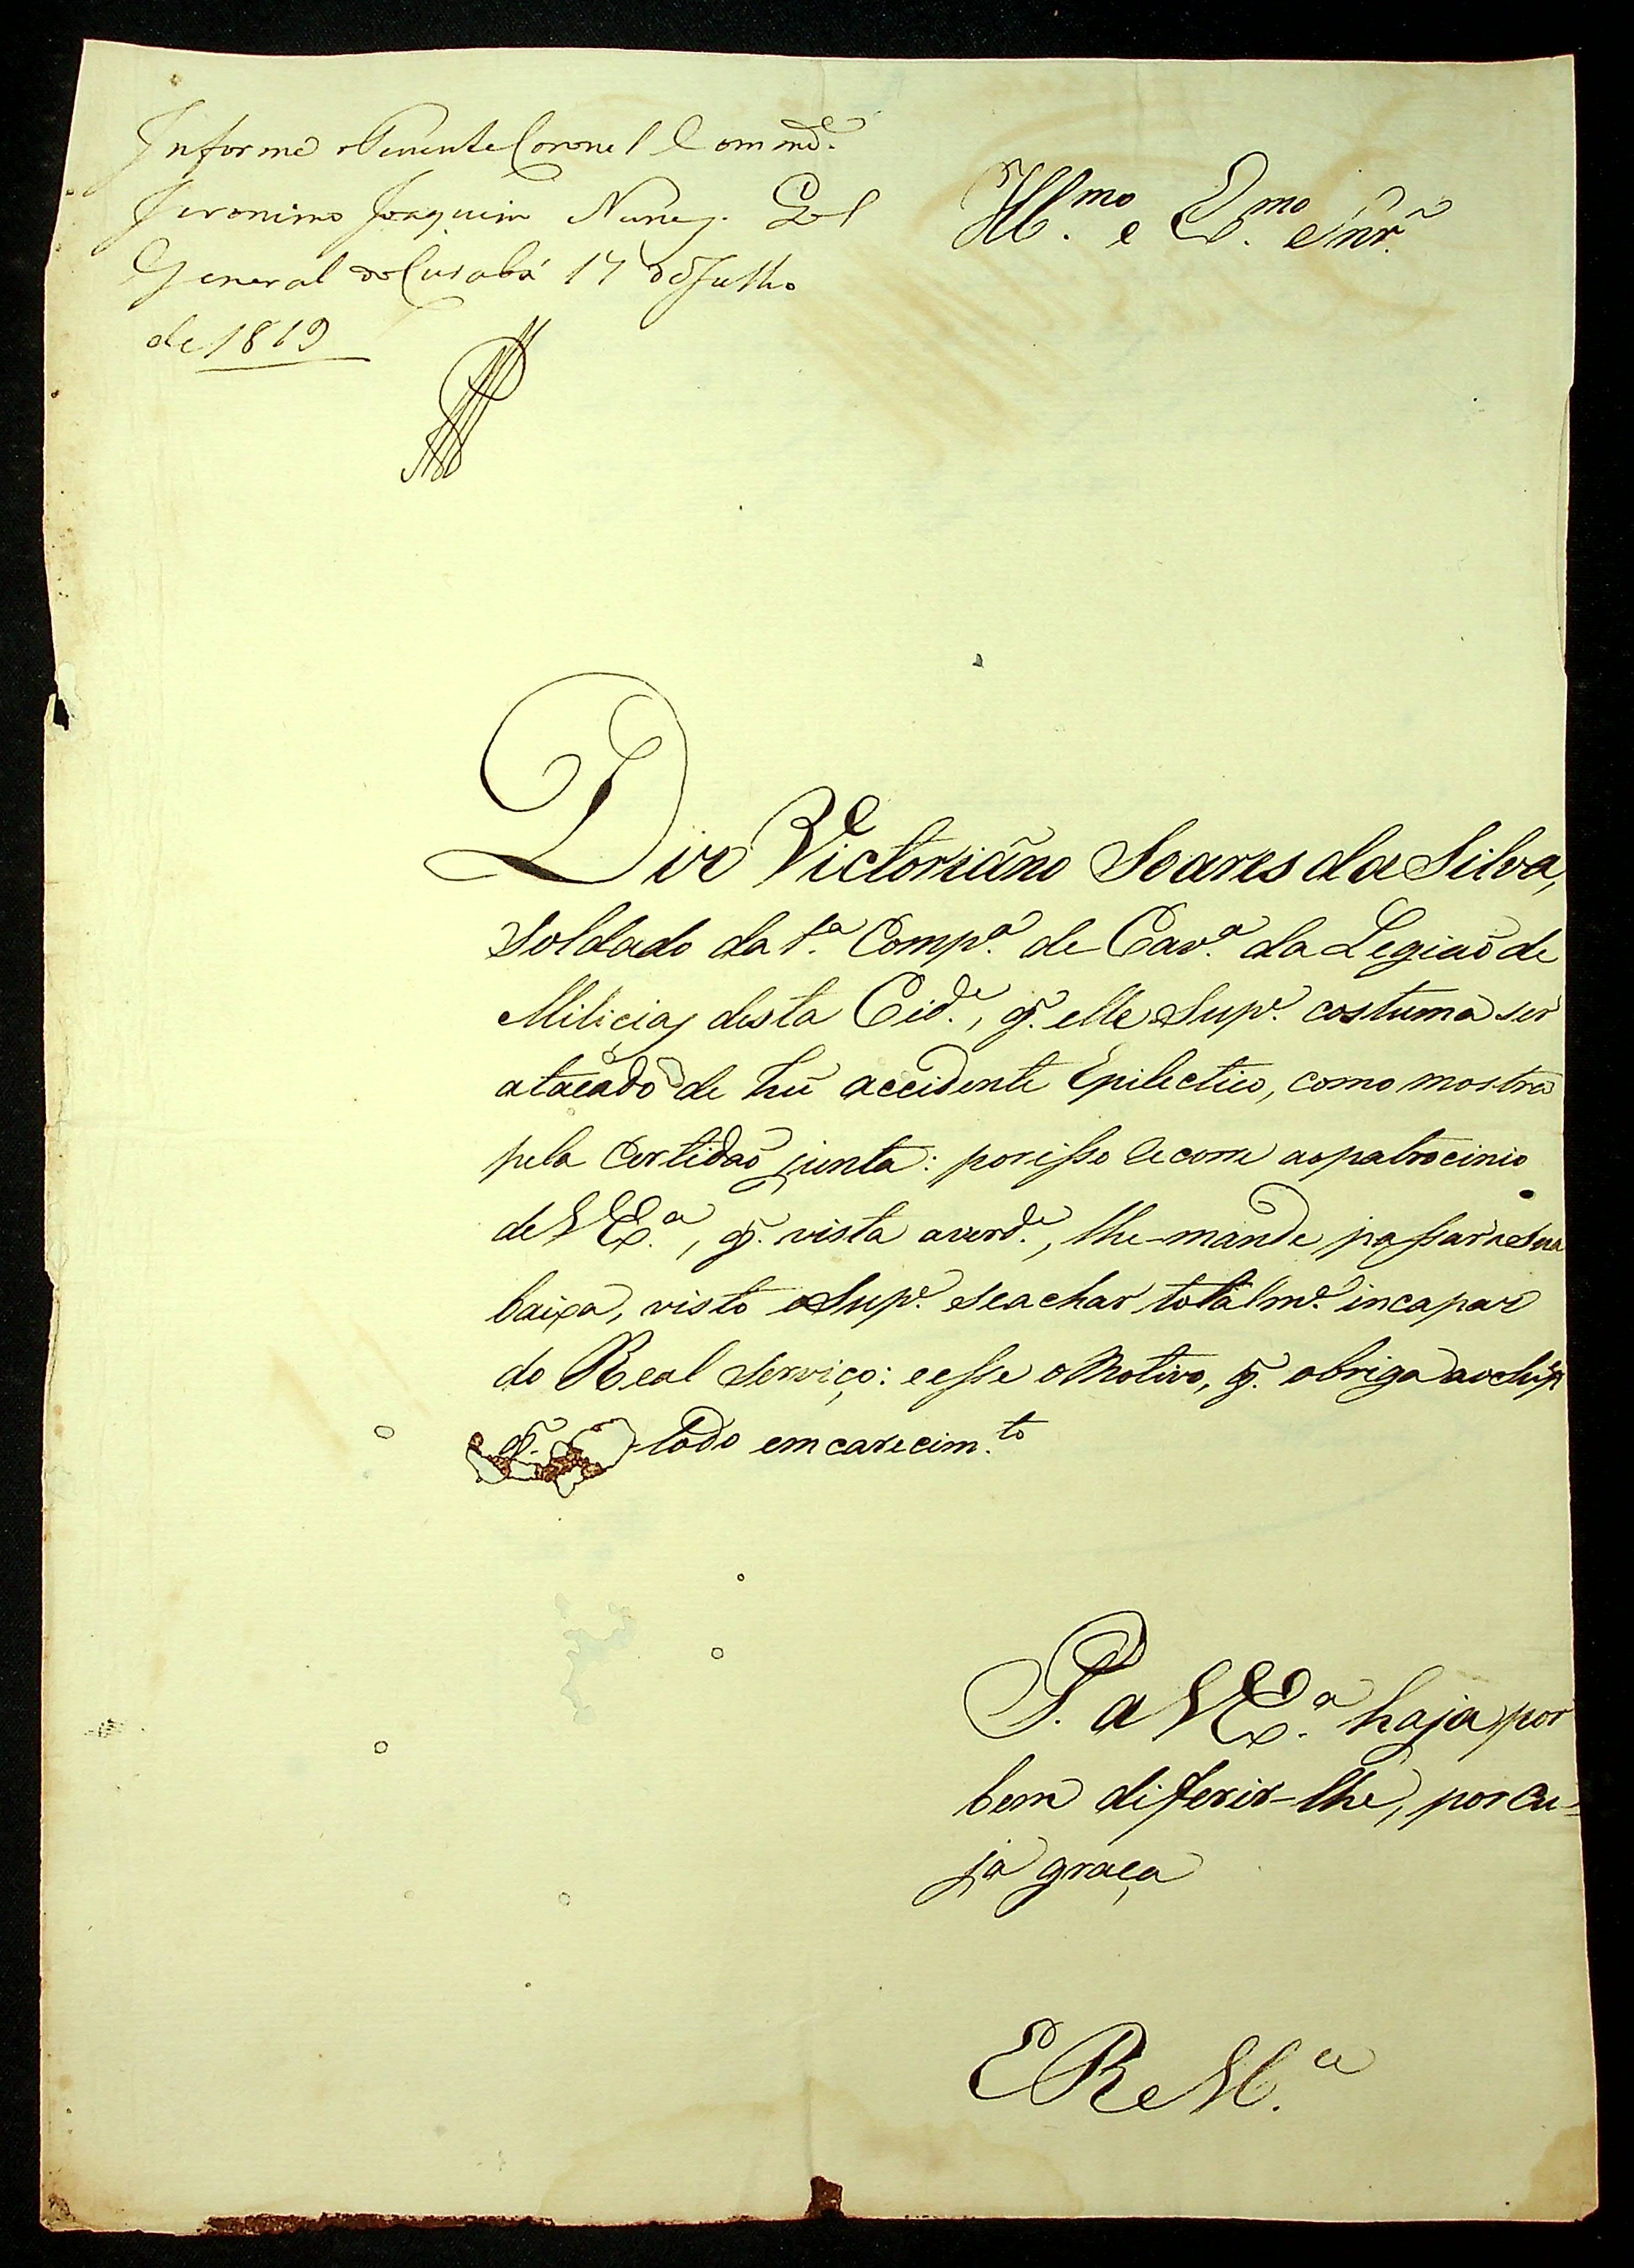 Informe o Tenente Coronel Commde.
Jeronimo Joaquim Nunes. Qel
General do Cuiabá 17 de Julho
de 1819
Illmo. e Exmo. Snr.
Diz Victoriãno Soares da Silva,
Soldado da 1a. Compa. de Cava. da Legiaõ de
Milicias desta Cide., q̃. elle Supe. costuma ser
atacado de hũ accidente Epilectico, como mostra
pela Certidaõ junta: porisso recorre ao patrocinio
de VExa., q̃. vista a verde., lhe-mande passar a sua
baixa, visto o Supe. se achar totalme. incapaz
do Real Serviço: e esse o Motivo, q̃. obriga ao Supe
todo emcarecimto.
P. a VExa. haja por
bem diferir-lhe, por cu-
ja graça
E R e Mce.